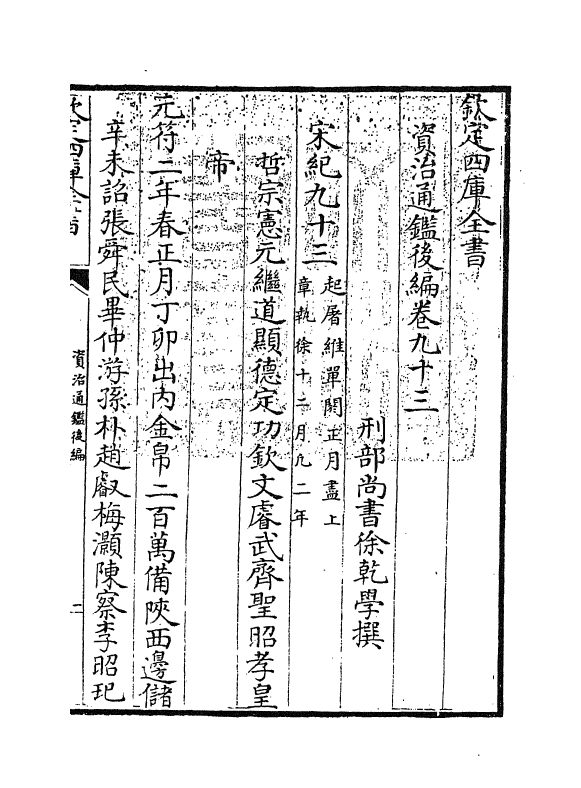 欽定四庫全書
資治通鑑後編卷九十三
刑部尚書徐乾學撰
宋紀九十三
起屠維單閼正月盡上
章執徐十二月凡二年
哲宗憲元繼道顯德定功欽文睿武齊聖昭孝皇
帝
元符二年春正月丁卯出内金帛二百萬備陝西邊儲
辛未詔張舜民畢仲游孫朴趙叡梅灝陳察李昭玘
欽定四庫全書
資治通鑑後編